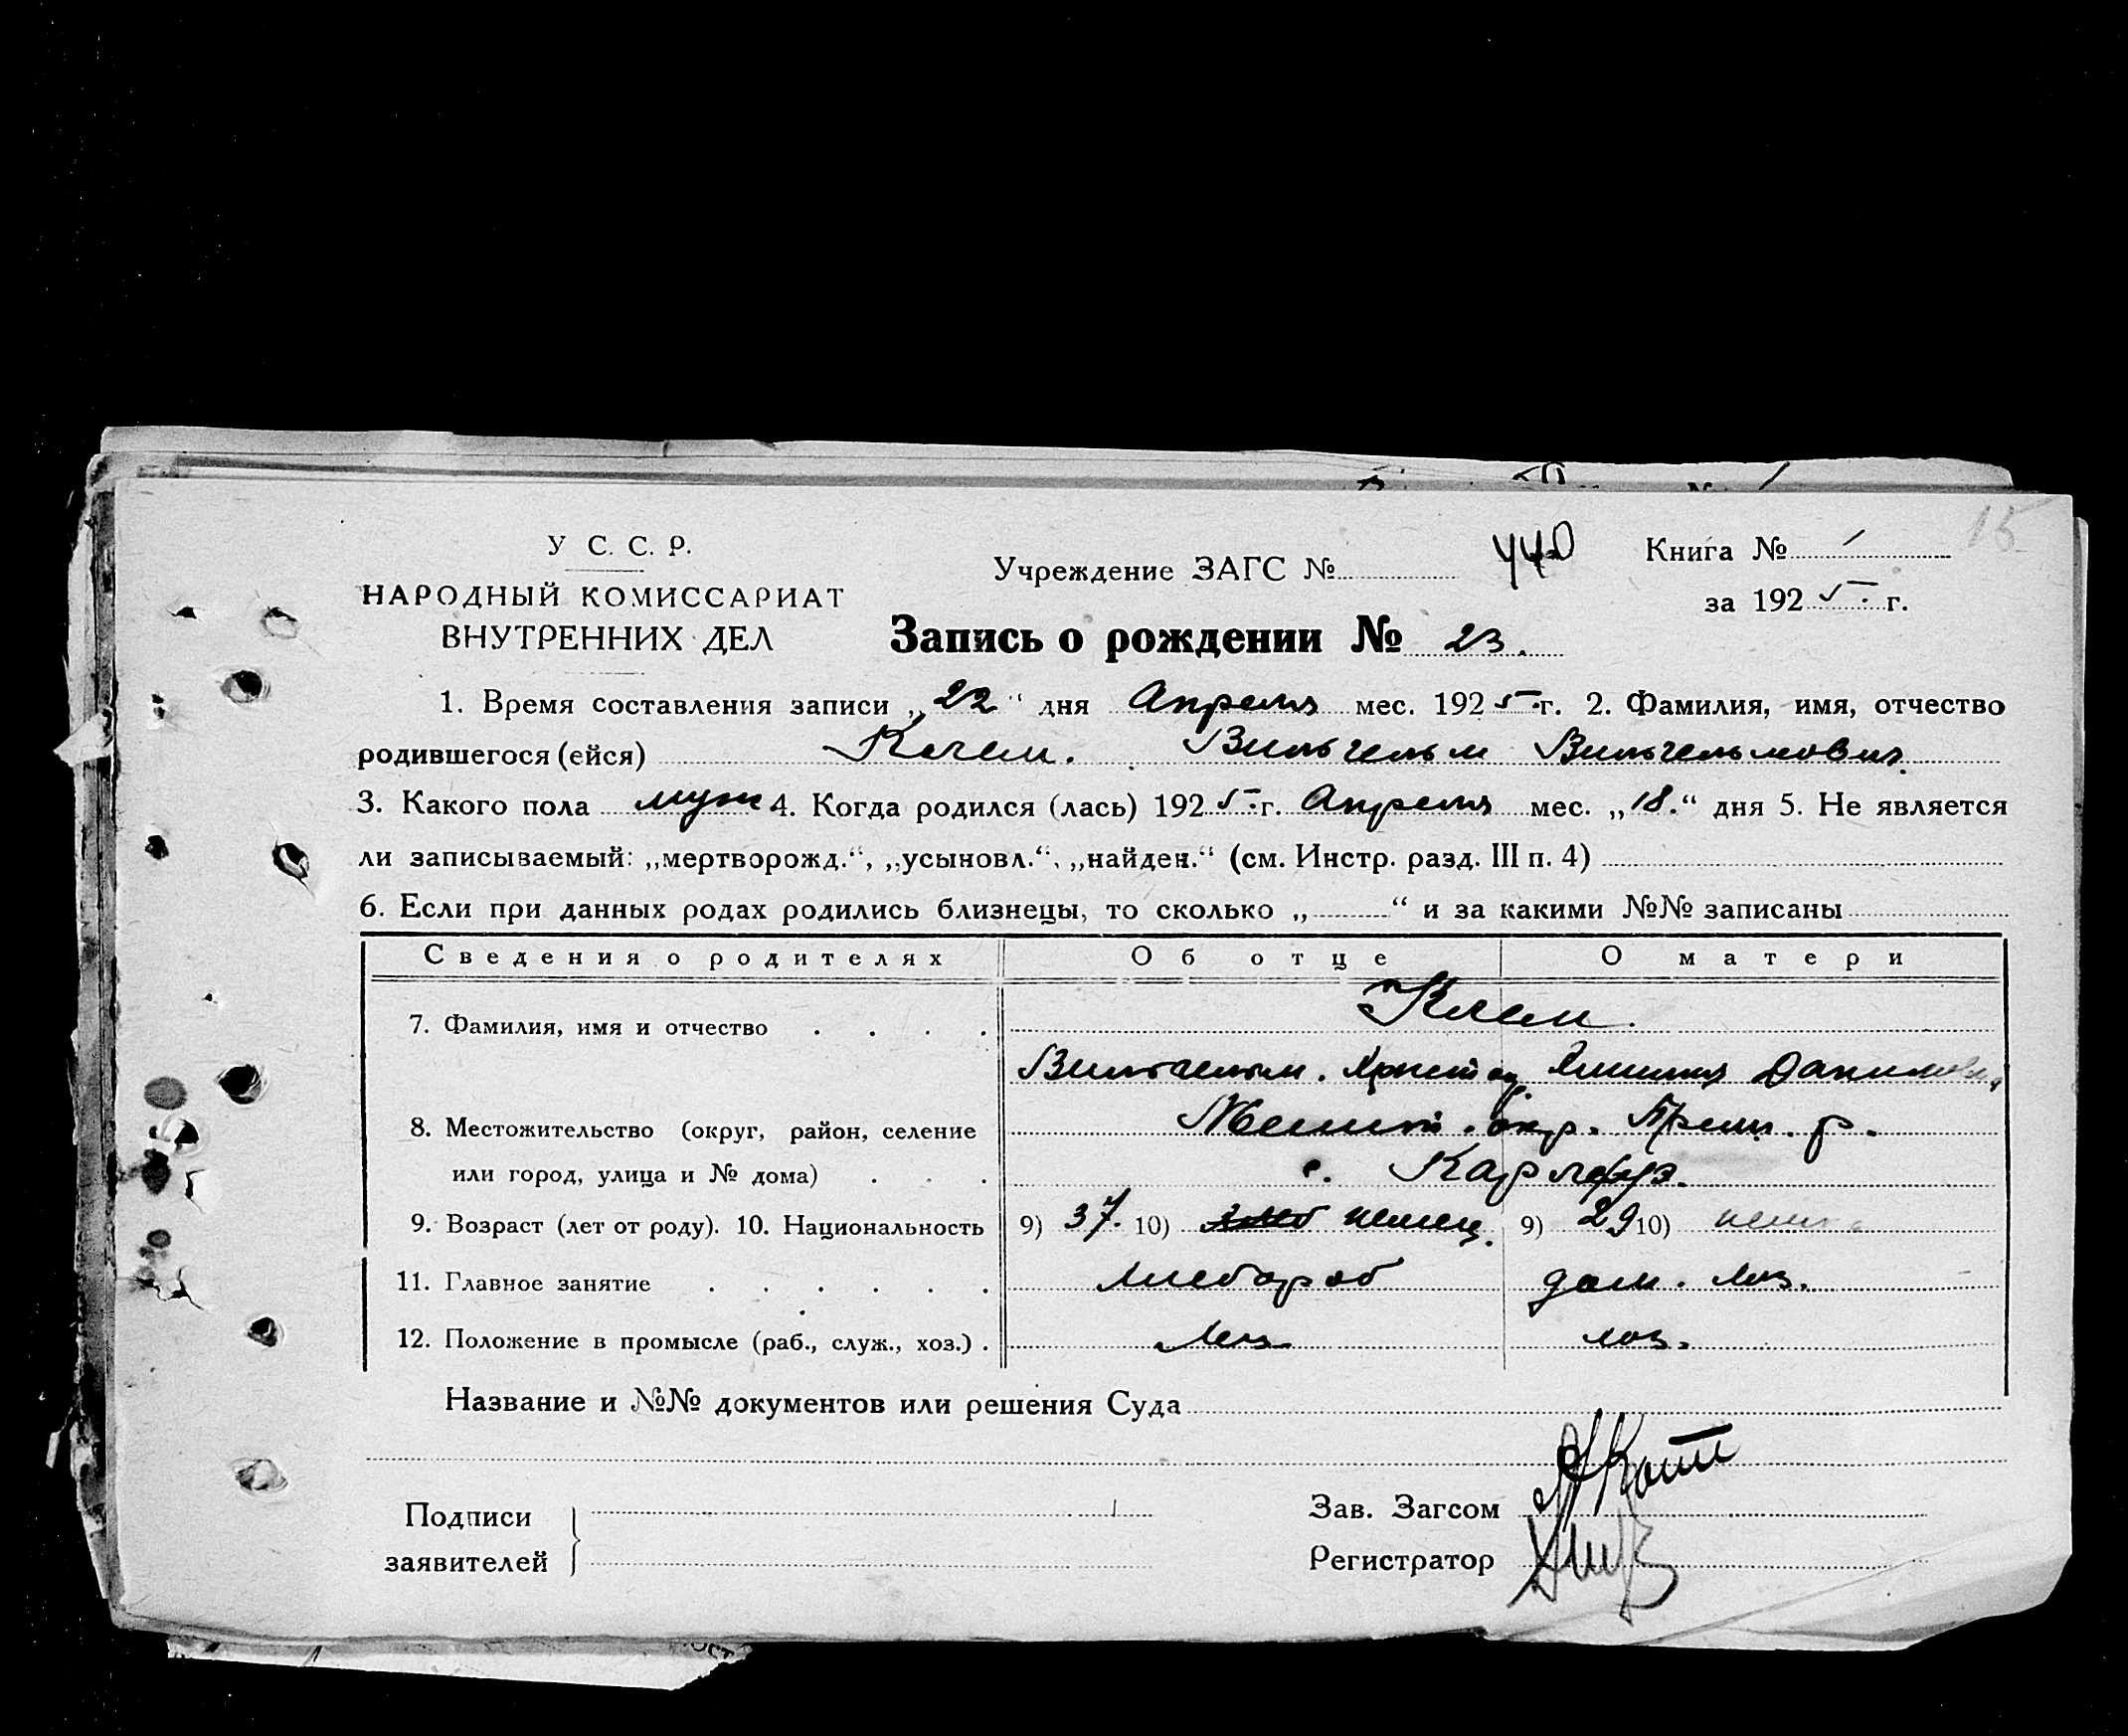 15
У С. С. Р.
НАРОДНЫЙ КОМИССАРИАТ
ВНУТРЕННИХ ДЕЛ
Учреждение ЗАГС № 440
Книга № 1
за 1925. г.
Запись о рождении № 23.
1. Время составления записи „22“ дня Апреля мес. 1925.г. 2. Фамилия, имя, отчество
родившегося (ейся) Вильгельм Вильгельмович
3. Какого пола муж 4. Когда родился (лась) 1925.г. Апреля мес. „18.“ дня 5. Не является
ли записываемый: „мертворожд.“, „усыновл.“, „найден.“ (см. Инстр. разд. III п. 4)
6. Если при данных родах родились близнецы, то сколько „ “ и за какими №№ записаны
Сведения о родителях Об отце О матери
7. Фамилия, имя и отчество
Вильгельм. Христ
8. Местожительство (округ, район, селение окр. р.
или город, улица и № дома) с. Карлсруэ.
9. Возраст (лет от роду). 10. Национальность 9) 37. 10) немец. 9) 29 10)
11. Главное занятие хлебороб дом. хоз.
12. Положение в промысле (раб., служ., хоз.) хоз. хоз.
Название и №№ документов или решения Суда
Подписи
заявителей
Зав. Загсом
Регистратор